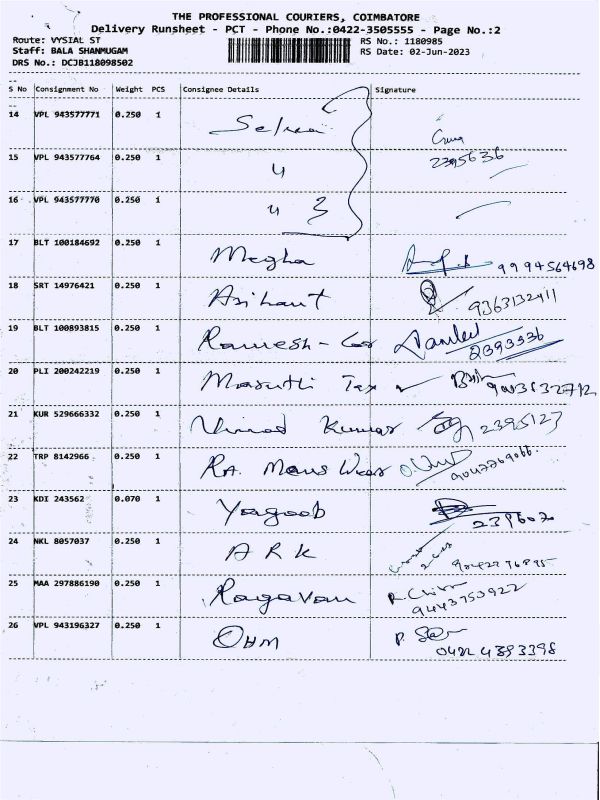 THE PROFESSIONAL COURIERS, COIMBATORE
Delivery Runsheet - PCT - Phone No.:0422-3505555 - Page No.:2
Route: VYSIAL ST
RS No.: 1180985
Staff: BALA SHANMUGAM
RS Date: 02-Jun-2023
DRS No.: DCJB118098502
S No Consignment No Weight PCS Consignee Details Signature
14 VPL 943577771 0.250 1
2395636
15 VPL 943577764 0.250 1 "
16 VPL 943577770 0.250 1 "
17 BLT 100184692 0.250 1 Megha 9994564698
18 SRT 14976421 0.250 1 Arihant 9363132411
19 BLT 100893815 0.250 1 Ramesh - 2393336
20 PLI 200242219 0.250 1 Maruthi Tex
21 KUR 529666332 0.250 1 Vinod Kumar 2395127
22 TRP 8142966 0.250 1 RA. Mens Wear
23 KDI 243562 0.070 1 Yagoob
24 NKL 8057037 0.250 1 ARK
25 MAA 297886190 0.250 1 Ragavan 9443753922
26 VPL 943196327 0.250 1 OHM
0422 4393398